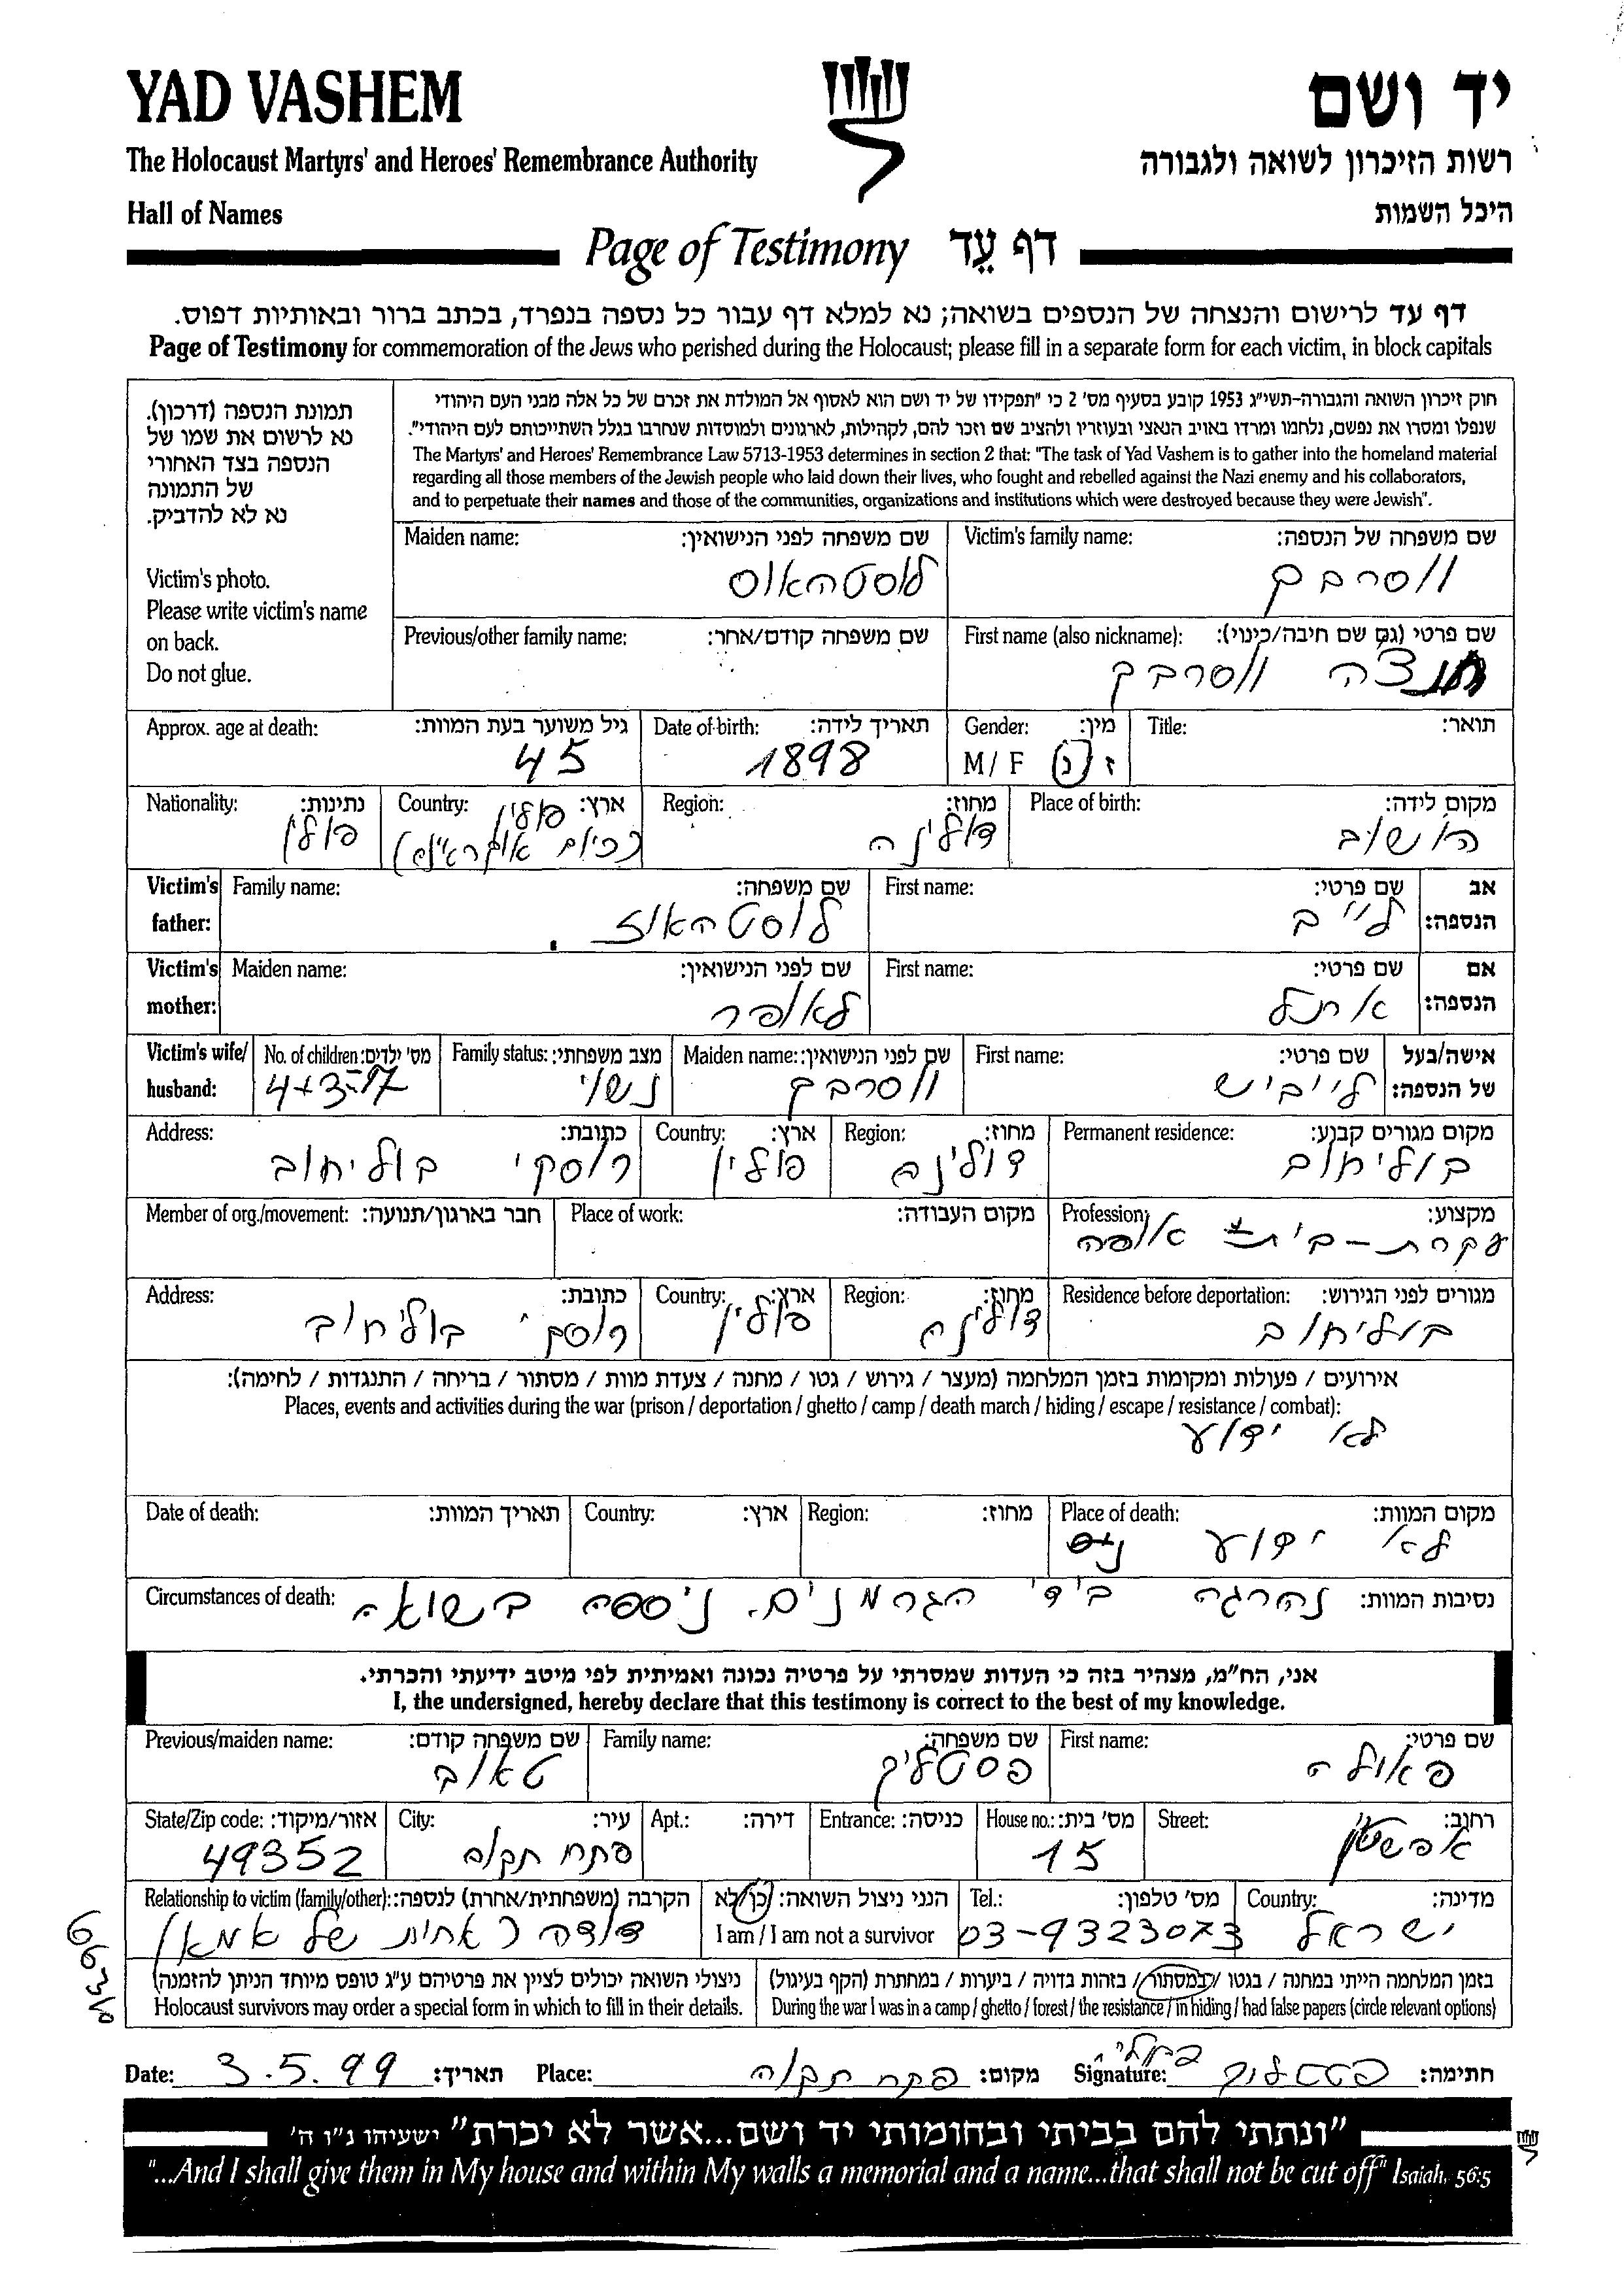 YAD VASHEM
יד ושם
The Holocaust Martyrs' and Heroes' Remembrance Authority
רשות הזיכרון לשואה ולגבורה
Hall of Names
היכל השמות
Page of Testimony דף עֵד
דף עד לרישום והנצחה של הנספים בשואה; נא למלא דף עבור כל נספה בנפרד, בכתב ברור ובאותיות דפוס.
Page of Testimony for commemoration of the Jews who perished during the Holocaust; please fill in a separate form for each victim, in block capitals
חוק זיכרון השואה והגבורה-תשי״ג 1953 קובע בסעיף מס' 2 כי "תפקידו של יד ושם הוא לאסוף אל המולדת את זכרם של כל אלה מבני העם היהודי
שנפלו ומסרו את נפשם, נלחמו ומרדו באויב הנאצי ובעוזריו ולהציב שם וזכר להם, לקהילות, לארגונים ולמוסדות שנחרבו בגלל השתייכותם לעם היהודי".
The Martyrs' and Heroes' Remembrance Law 5713-1953 determines in section 2 that: "The task of Yad Vashem is to gather into the homeland material
regarding all those members of the Jewish people who laid down their lives, who fought and rebelled against the Nazi enemy and his collaborators,
and to perpetuate their names and those of the communities, organizations and institutions which were destroyed because they were Jewish".
תמונת הנספה (דרכון).
נא לרשום את שמו של
הנספה בצד האחורי
של התמונה
נא לא להדביק.
Victim's photo.
Please write victim's name
on back.
Do not glue.
Victim's family name: שם משפחה של הנספה:
ווסרבך
Maiden name: שם משפחה לפני הנישואין:
לוסטהאוס
First name (also nickname): שם פרטי (גם שם חיבה/כינוי):
ווסרבך
Previous/other family name: שם משפחה קודם/אחר:
Title: תואר:
Gender: מין:
M / F ז / נ
Date of birth: תאריך לידה:
1898
Approx. age at death: גיל משוער בעת המוות:
45
Place of birth: מקום לידה:
השוב
Region: מחוז:
דולינה
Country: ארץ:
פולין
(כיום אוקראינה)
Nationality: נתינות:
פולין
Victim's father: אב הנספה:
First name: שם פרטי:
לייב
Family name: שם משפחה:
לוסטהאוז
Victim's mother: אם הנספה:
First name: שם פרטי:
אתל
Maiden name: שם לפני הנישואין:
לאופר
Victim's wife/ husband: אישה/בעל של הנספה:
First name: שם פרטי:
לייביש
Maiden name: שם לפני הנישואין:
ווסרבך
Family status: מצב משפחתי:
נשוי
No. of children: מס' ילדים:
4+3=7
Permanent residence: מקום מגורים קבוע:
בוליחוב
Region: מחוז:
דולינה
Country: ארץ:
פולין
Address: כתובת:
רוסקי בוליחוב
Profession: מקצוע:
עקרת-בית אופה
Place of work: מקום העבודה:
Member of org./movement: חבר בארגון/תנועה:
Residence before deportation: מגורים לפני הגירוש:
בוליחוב
Region: מחוז:
דולינה
Country: ארץ:
פולין
Address: כתובת:
רוסקי בוליחוב
אירועים / פעולות ומקומות בזמן המלחמה (מעצר / גירוש / גטו / מחנה / צעדת מוות / מסתור / בריחה / התנגדות / לחימה):
Places, events and activities during the war (prison / deportation / ghetto / camp / death march / hiding / escape / resistance / combat):
לא ידוע
Place of death: מקום המוות:
לא ידוע
Region: מחוז:
Country: ארץ:
Date of death: תאריך המוות:
Circumstances of death: נסיבות המוות:
נהרגה בידי הגרמנים. ניספה בשואה
אני, הח"מ, מצהיר בזה כי העדות שמסרתי על פרטיה נכונה ואמיתית לפי מיטב ידיעתי והכרתי.
I, the undersigned, hereby declare that this testimony is correct to the best of my knowledge.
First name: שם פרטי:
פאולה
Family name: שם משפחה:
פסטליק
Previous/maiden name: שם משפחה קודם:
טאוב
Street: רחוב:
אפשטין
House no.: מס' בית:
15
Entrance: כניסה:
Apt.: דירה:
City: עיר:
פתח תקוה
State/Zip code: אזור/מיקוד:
49352
Country: מדינה:
ישראל
Tel.: מס' טלפון:
03-9323073
הנני ניצול השואה: כן/לא
I am / I am not a survivor
Relationship to victim (family/other): הקרבה (משפחתית/אחרת) לנספה:
דודה (אחות של אמא)
בזמן המלחמה הייתי במחנה / בגטו / במסתור / בזהות בדויה / ביערות / במחתרת (הקף בעיגול)
During the war I was in a camp / ghetto / forest / the resistance / in hiding / had false papers (circle relevant options)
ניצולי השואה יכולים לציין את פרטיהם ע"ג טופס מיוחד הניתן להזמנה)
Holocaust survivors may order a special form in which to fill in their details.
Date: 3.5.99 תאריך:
Place: פתח תקוה מקום:
Signature: פסטליק חתימה:
"ונתתי להם בביתי ובחומותי יד ושם...אשר לא יכרת" ישעיהו נ"ו ה'
"...And I shall give them in My house and within My walls a memorial and a name...that shall not be cut off" Isaiah, 56:5